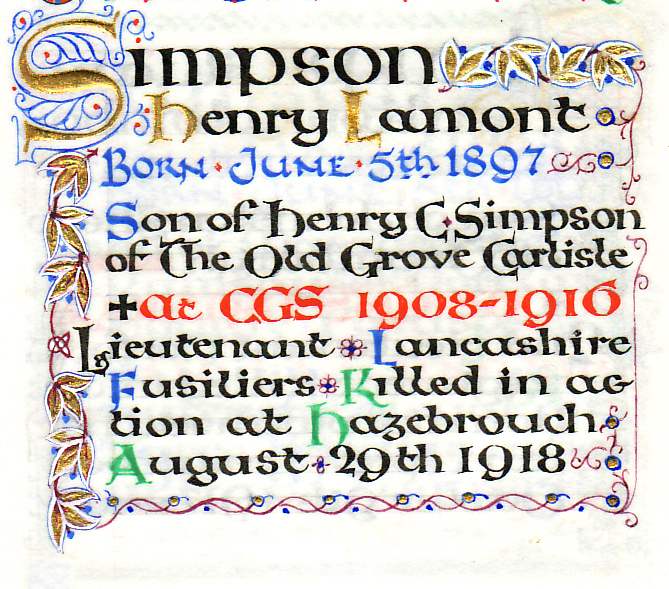 Simpson
Henry Lamont
Born · June · 5th 1897
Son of Henry C·Simpson
of The Old Grove Carlisle
+at CGS 1908-1916
Lieutenant Lancashire
Fusiliers Killed in ac-
tion at Hazebrouch.
August · 29th 1918